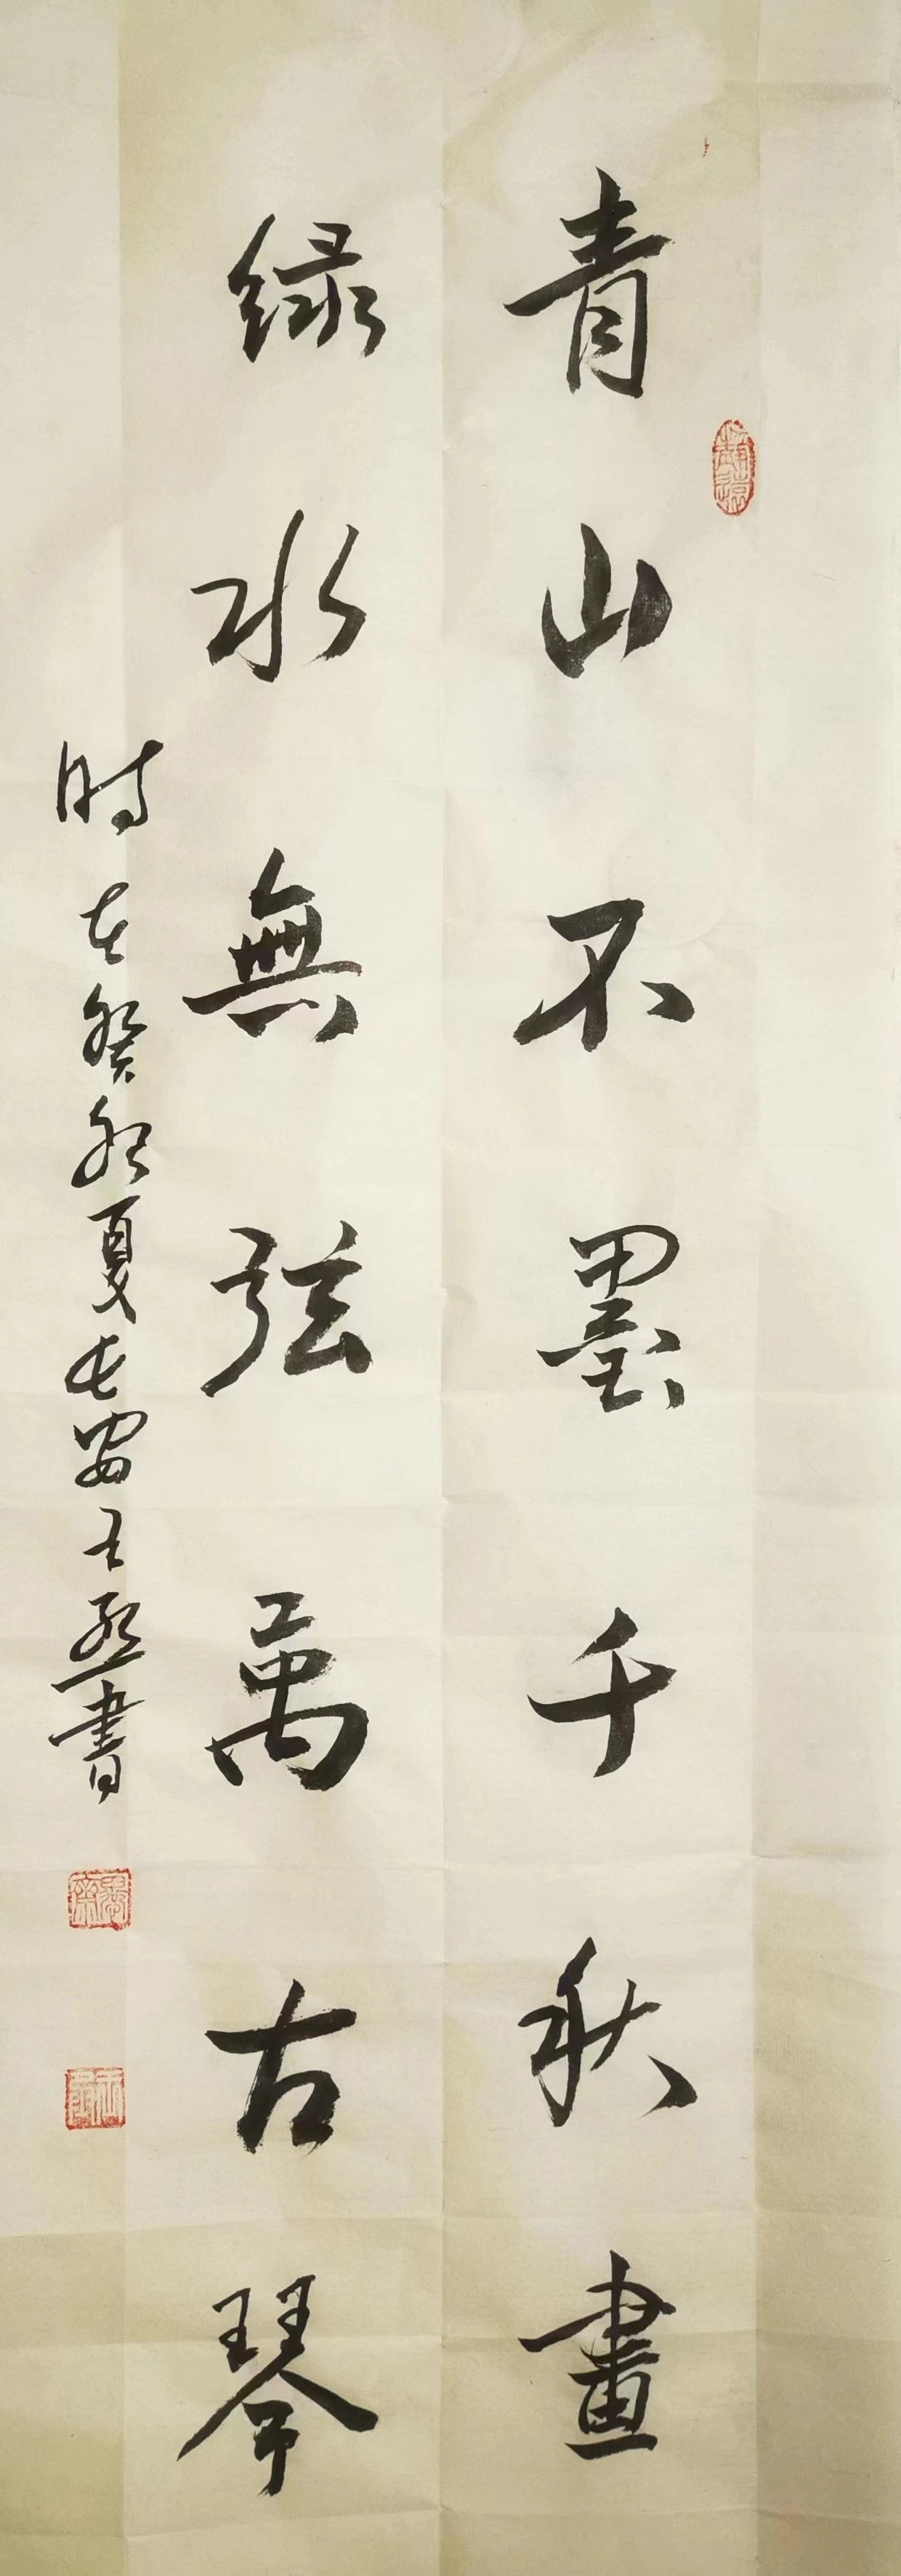 青山不墨千秋畫
绿水無弦萬古琴
時在癸卯夏長安王烝書